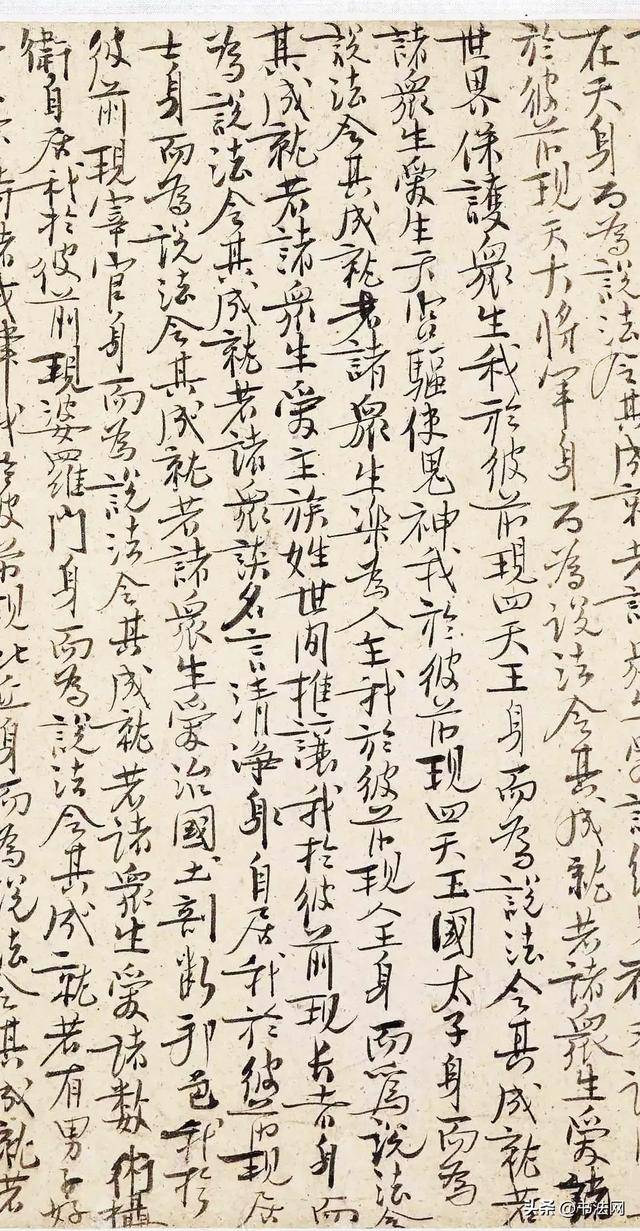 在天身而為說法令其成就若諸眾生愛
於彼前現天大將軍身而為說法令其成就若諸眾生愛
世界保護眾生我於彼前現四天王身而為說法令其成就若
諸眾生愛生天宮驅使鬼神我於彼前現四天王國太子身而為
說法令其成就若諸眾生樂為人主我於彼前現人王身而為說法令
其成就若諸眾生愛主族姓世間推讓我於彼前現長者身而
為說法令其成就若諸眾談名言清淨身自居我於彼前現居
士身而為說法令其成就若諸眾生愛治國土剖斷邦邑我於
彼前現宰官身而為說法令其成就若諸眾生愛諸數術攝
衛自居我於彼前現婆羅門身而為說法令其成就若有男子好
持諸戒律我於彼前現比丘身而為說法令其成就若
头条 @书法网